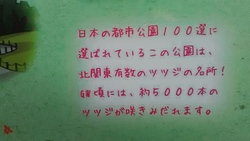 日本の都市公園100選に
選ばれているこの公園は、
北関東有数のツツジの名所!
6月頃には、約5000本の
ツツジが咲きみだれます。